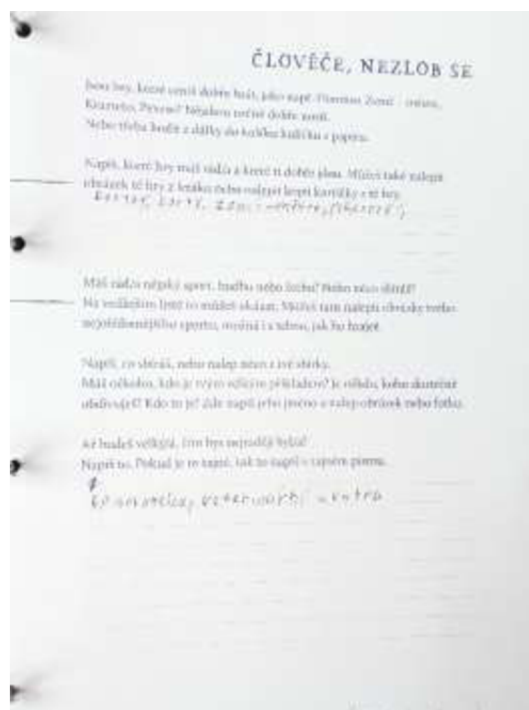 ČLOVĚČE, NEZLOB SE
Jsou hry, které umíš dobře hrát, jako např. Země - město,
Kvarteto, Pexeso? Nějakou určitě dobře umíš.
Nebo třeba hodit z dálky do košíku kuličku z papíru.
Napiš, které hry máš rád/a a které ti dobře jdou. Můžeš také nalepit
obrázek té hry z letáku nebo nalepit kartičky z té hry.
Máš rád/a nějaký sport, hudbu nebo knihu? Nebo něco sbíráš?
Na vedlejším listě to můžeš ukázat. Můžeš tam nalepit obrázky tvého
nejoblíbenějšího sportu, možná i s tebou, jak ho hraješ.
Napiš, co sbíráš, nebo nalep něco z tvé sbírky.
Máš někoho, kdo je tvým velkým příkladem? Je někdo, koho skutečně
obdivuješ? Kdo to je? Zde napiš jeho jméno a nalep obrázek nebo fotku.
Až budeš velký/á, čím bys nejraději byl/a?
Napiš to. Pokud je to tajné, tak to napiš v tajném písmu.